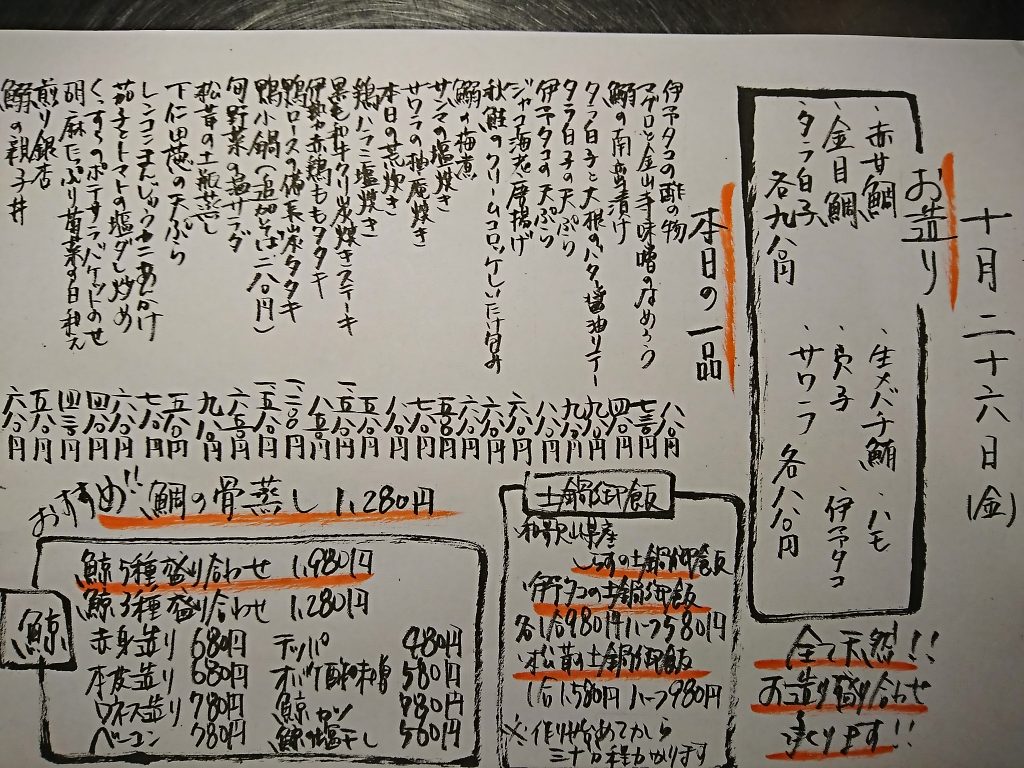 十月二十六日(金)
お造り
・赤甘鯛
・金目鯛
・タラ白子
各九八〇円
・生メバチ鮪・ハモ
・穴子・伊予ダコ
・サワラ 各八八〇円
全て天然!!
お造り盛り合わせ
承ります!!
本日の一品
伊予ダコの酢の物 八八〇円
マグロと金山寺味噌のなめろう 七三〇円
鰯の南蛮漬け 四八〇円
タラ白子と大根のバター醤油ソテー 九八〇円
タラ白子の天ぷら 九八〇円
伊予ダコの天ぷら 八八〇円
ジャコ海老唐揚げ 六八〇円
秋鮭のクリームコロッケしいたけ包み 六八〇円
鰯の梅煮 六八〇円
サンマの塩焼き 五八〇円
サワラの柚庵焼き 七八〇円
本日の荒炊き 八八〇円
鶏ハラミ塩焼き 五八〇円
黒毛和牛クリ炭焼きステーキ 一、五八〇円
伊勢赤鶏ももタタキ 八五〇円
鴨ロースの備長炭タタキ
鴨小鍋(追加そば二八〇円)
旬野菜の温サラダ 六五〇円
松茸の土瓶蒸し 九八〇円
下仁田葱の天ぷら 五八〇円
レンコンまんじゅうカニあんかけ 七八〇円
茄子とトマトの塩ダレ炒め 六八〇円
くっずらのポテサラバケットのせ 四八〇円
胡麻たっぷり菊菜の白和え 四三〇円
煎り銀杏 五八〇円
鰯の親子丼 六八〇円
おすすめ!!鯛の骨蒸し 1,280円
土鍋御飯
・和歌山県産
しらすの土鍋御飯
・伊予ダコの土鍋御飯
各1合980円ハーフ580円
・松茸の土鍋御飯
1合1,580円ハーフ980円
※作り始めてから
三十分程かかります
鯨
鯨5種盛り合わせ 1,980円
鯨3種盛り合わせ 1,280円
赤身造り 680円 テッパ 480円
本皮造り 680円 オバケ酢味噌 580円
ウネス造り 780円 鯨カツ 780円
ベーコン 780円 鯨の塩干し 580円